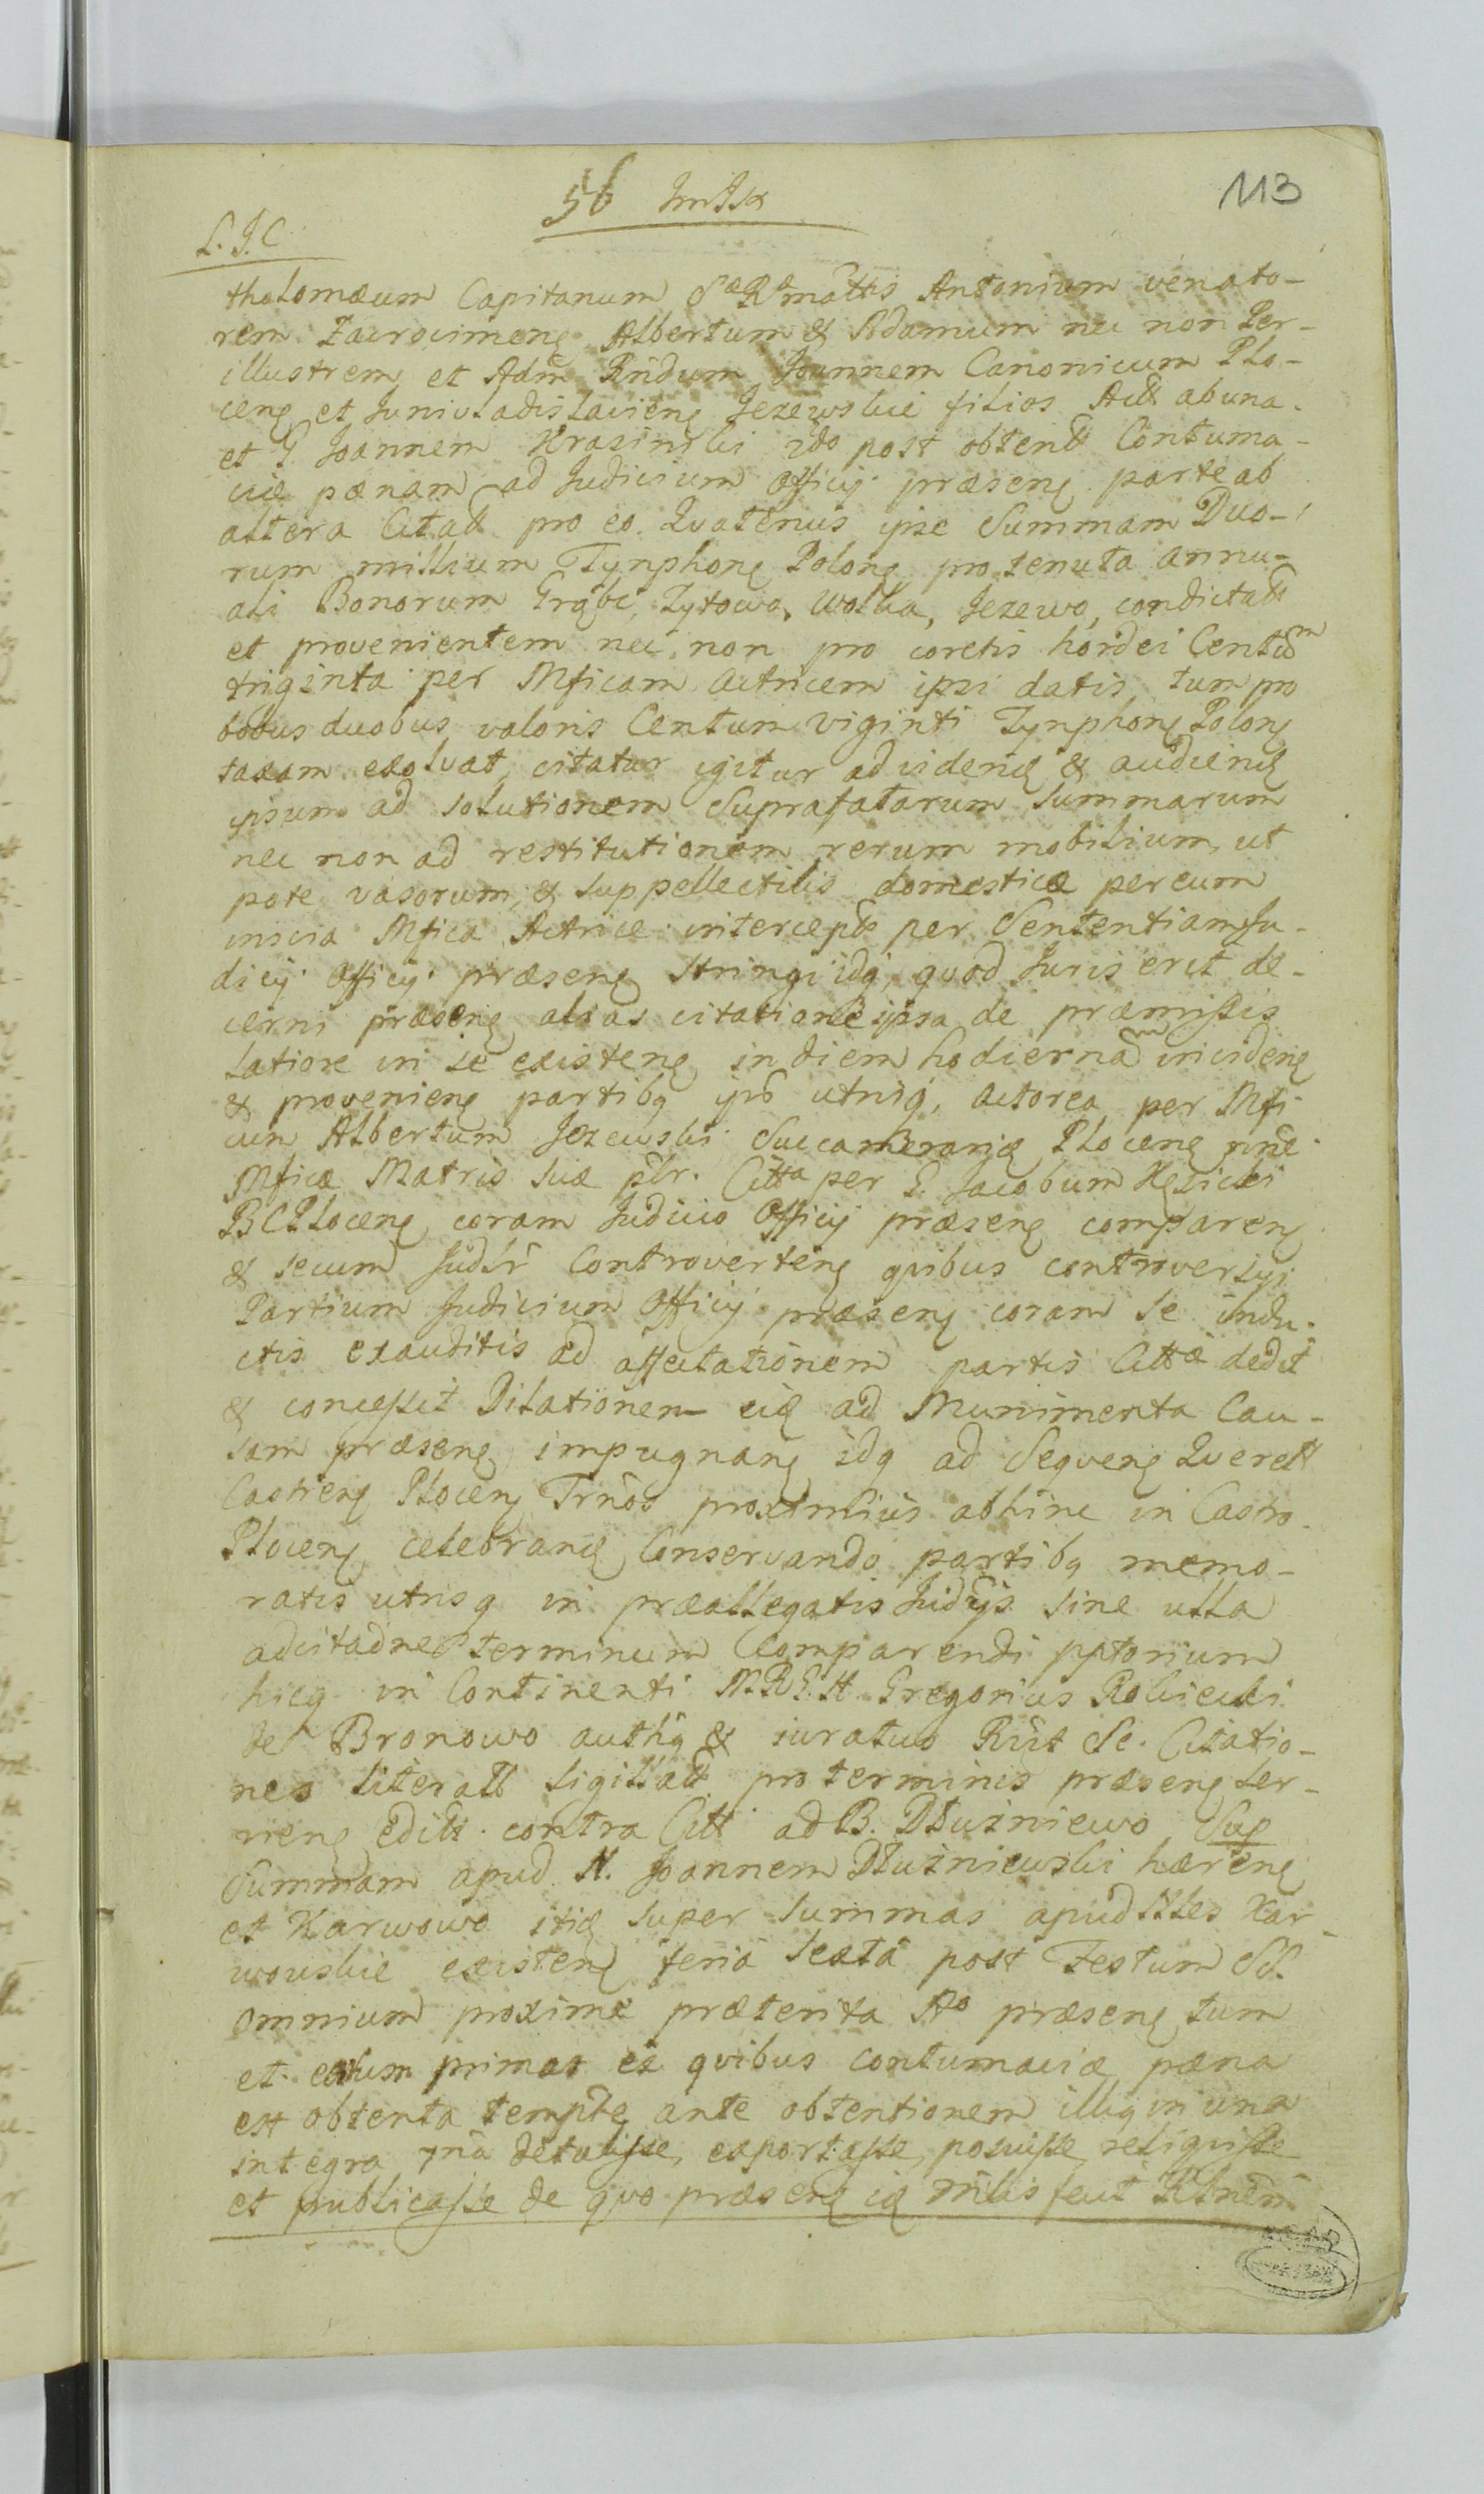 56
113
L. J. C
tholomæum Capitanum Sæ Ræ mattis Antonium venato-
rem Zacrocimenę Albertum & Adamum nec non Per-
illustrem et Adm Rndum Joannem Canonicum Plo-
cenę et Juniuladislaviенę Jezewskie filios Actt abuna
et G. Joannem Krasinski 2do post obtentt Contuma-
ciæ pænam ad Judicium Officij præsenę parte ab
altera Citatt pro eo. Qvatenus ipse Summam Duo-
rum millium Tynphonę Polonę pro tenuta annu-
ali Bonorum Grąbć, Zytowo, Wolka, Jezewo, condictatt
et provenientem nec non pro coretis hordei Centum
triginta per Mficam Actricem ipsi datis, tum pro
bobus duobus valoris Centum viginti Tynphonę Polonę
taxam exolvat, citatur igitur ad videnđ & audienđ
ipsum ad solutionem Suprafatarum Summarum
nec non ad restitutionem rerum mobilium, ut
pote vasorum, & suppellectilis domesticæ per eum
inscia Mfica Actrice intercept per Sententiam Ju-
dicij Officij præsenę stringi idq, quod Juris erit de-
cerni præsenę alias citatione ipsa de præmissis
latiore in se existenę in diem hodiernam incidenę
& provenienę partibq ipś utrisq, actorea per Mfi
cum Albertum Jezewski Succamerarię Plocenę nne
Mficæ Matris suæ plr. Citta per G. Jacobum Kęsicki
BCPlocenę coram Judicio Officij præsenę comparenę
& secum Judlr Controvertenę quibus controversijs
Partium Judicium Officij præsenę coram se indu-
ctis exauditis ad affectationem partis Cittæ dedit
& concessit Dilationem eiđ ad Munimenta Cau-
sam præsenę impugnanę idq ad Seqvenę Qverell
Castrenę Plocenę Trnos proximius abhinc in Castro
Plocenę celebranđ Conservando partibq memo-
ratis utrisq in præallegatis Judijs sine ulla
adcitatne terminum Comparendi pptorium
hicq in Continenti M.R.G.H. Gregorius Robiecki
de Bronowo authq & iuratus Rlit Se. Citatio-
nes literatt sigillatt pro terminis præsenę ser-
vienę Editt. contra Citt ad B. Dłużniewo Sup
Summam apud N. Joannem Dłużniewski hærenę
et Karwowo itiđ super summas apud NNes Kar-
wowskie existenę feria sexta post Festum SS.
Omnium proxime præterita Ao præsenę tum
et earum primas ex quibus contumaciæ pæna
est obtenta tempte ante obtentionem illiq in una
integra 7na detulisse, exportasse, posuisse, reliquisse
et publicasse de qvo præsenę iđ mlis fecit Rltnem